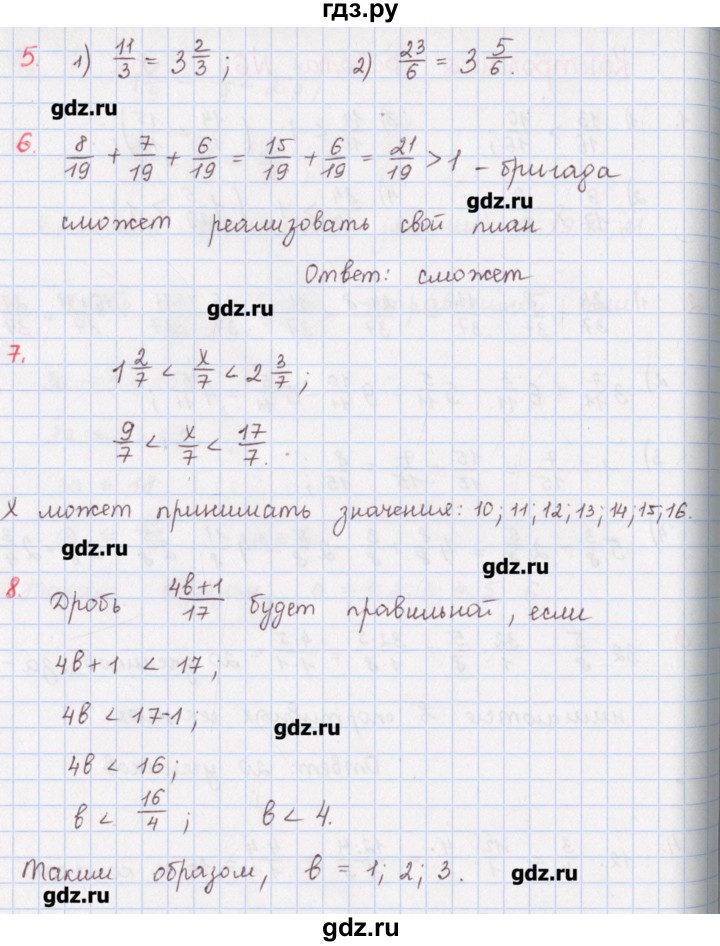 гдз.ру
5. 1) 11/3 = 3 2/3 ; 2) 23/6 = 3 5/6.
gdz.ru
6. 8/19 + 7/19 + 6/19 = 15/19 + 6/19 = 21/19 > 1 – бригада
gdz.ru
сможет реализовать свой план
Ответ: сможет
gdz.ru
7. 1 2/7 < x/7 < 2 3/7 ;
9/7 < x/7 < 17/7.
X может принимать значения: 10; 11; 12; 13; 14; 15; 16.
gdz.ru
gdz.ru
8. Дробь 4в+1/17 будет правильной, если
4в+1 < 17;
4в < 17-1;
gdz.ru
4в < 16;
в < 16/4 ; в < 4.
Таким образом, в = 1; 2; 3.
gdz.ru
gdz.ru
gdz.ru